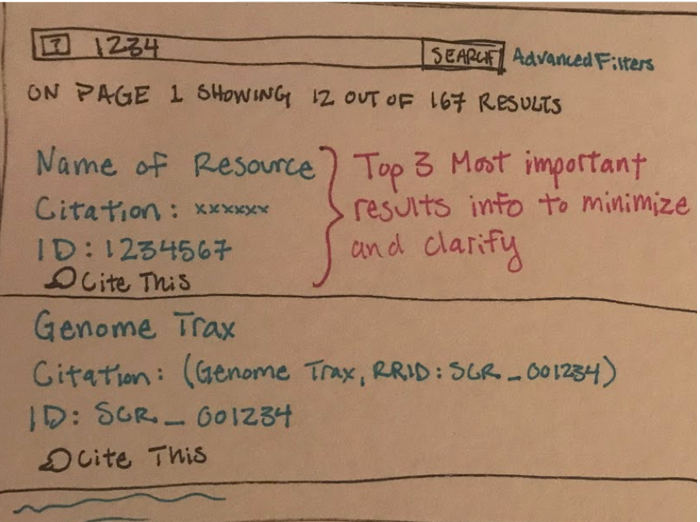 ? 1234 SEARCH Advanced Filters
ON PAGE 1 SHOWING 12 OUT OF 167 RESULTS
Name of Resource
Citation: xxxxxx
ID: 1234567
Cite This
Top 3 Most important
results info to minimize
and clarify
Genome Trax
Citation: (Genome Trax, RRID: SCR_001234)
ID: SCR_001234
Cite This